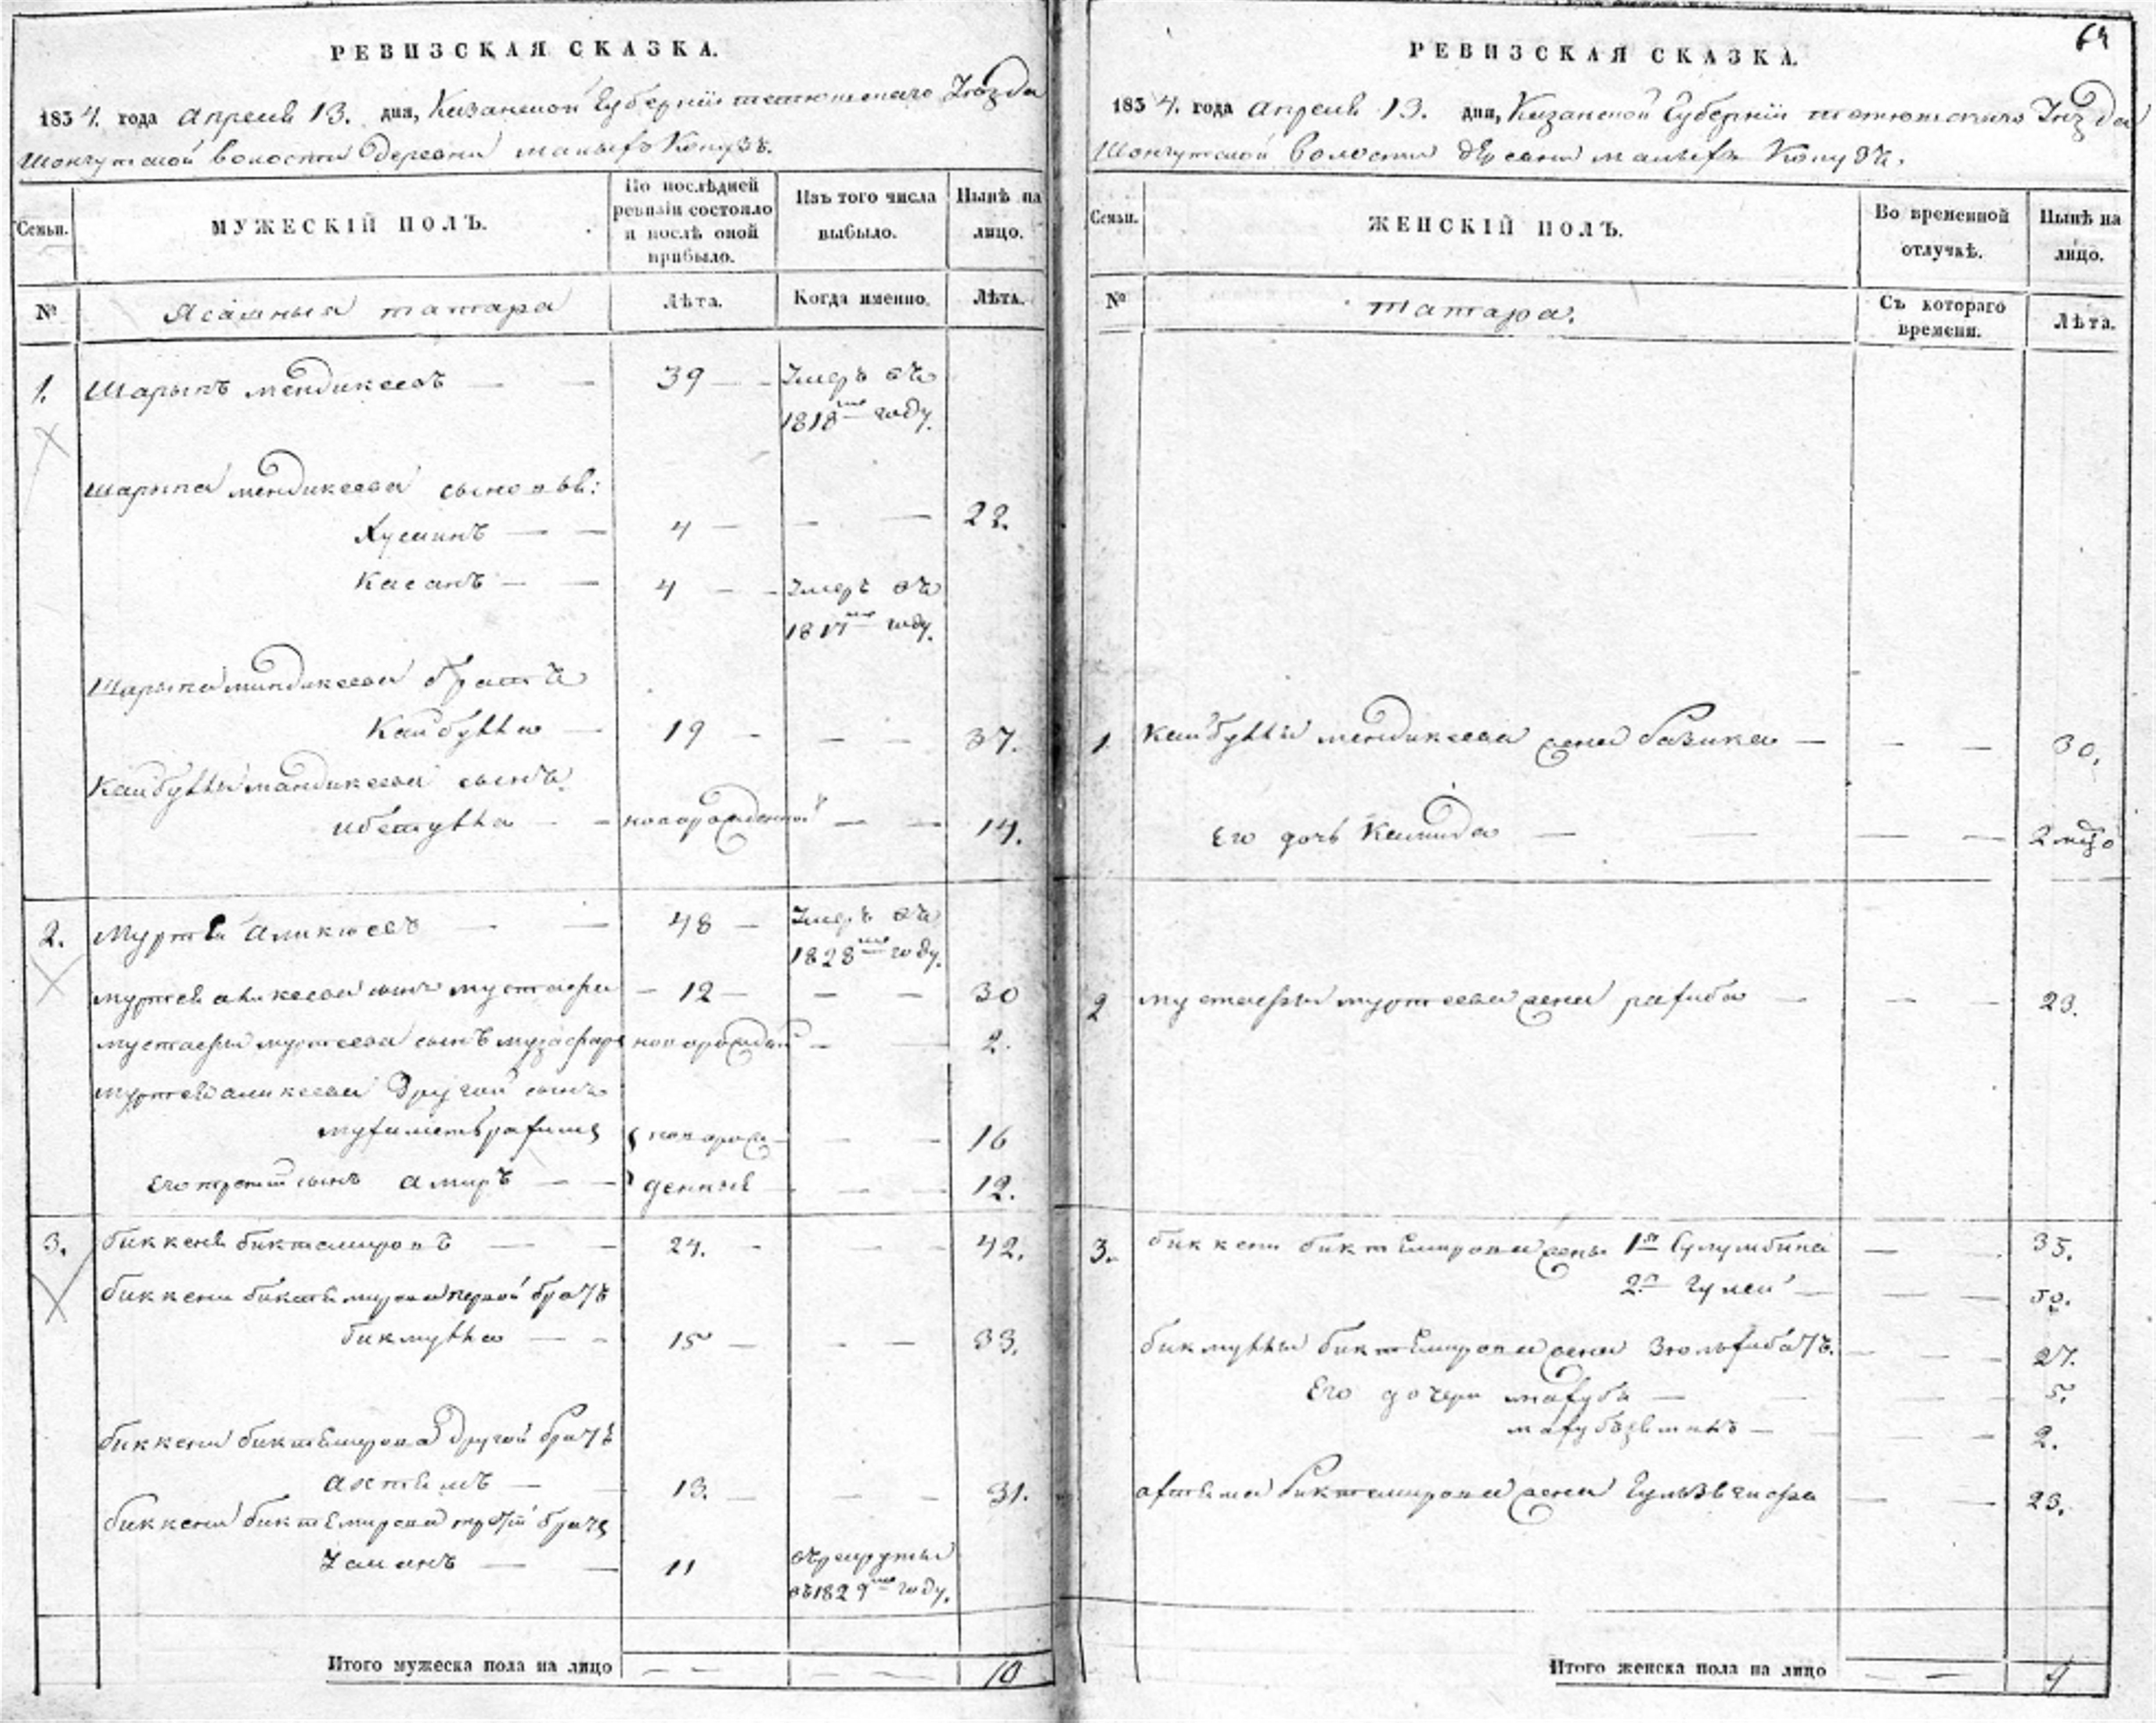 РЕВИЗСКАЯ СКАЗКА.
1834. года апреля 13. дня, Казанской Губернии тетюшскаго Уѣзда
Шонгутской волости Деревни малыхъ Кокузъ.
Семьи.
МУЖЕСКІЙ ПОЛЪ.
По послѣдней ревизіи состояло и послѣ оной прибыло.
Изъ того числа выбыло.
Нынѣ на лицо.
№
Ясашныя татара
Лѣта.
Когда именно.
Лѣта.
1. Шарыпъ мендикеевъ — — 39 — — Умеръ въ
1818мъ году.
Шарыпа мендикеева сыновья:
Хусаинъ — — 4 — — — 22.
Хасанъ — — 4 — — Умеръ въ
1817мъ году.
Шарыпа миндикеева братъ
Кайбулла — 19 — — — 37.
Кайбуллы мандикеева сынъ
ибетулла — — новорожденной — — 14.
2. Муртей аликеевъ — — 48 — Умеръ въ
1828мъ году.
муртея аликеева сынъ мустафа — 12 — — — 30
мустафы муртеева сынъ музафаръ новорожден — — 2.
муртея аликеева Другой сынъ
мухаметьрахимъ новорож — — 16
Его третій сынъ амиръ — — денные — — 12.
3. биккеня биктемировъ — — 24. — — — 42.
биккени биктемирова первой братъ
бикмулла — — 15 — — — 33.
биккени биктемирова другой братъ
ахтямъ — — 13. — — — 31.
биккени биктемирова третій братъ
Заманъ — — 11 въ рекруты
въ 1829мъ году.
Итого мужеска пола на лицо — — — — 10
64
РЕВИЗСКАЯ СКАЗКА.
1834. года апреля 13. дня, Казанской Губерніи тетюшскаго Уѣзда
Шонгутской волости деревни малыхъ Кокузъ.
Семьи.
ЖЕНСКІЙ ПОЛЪ.
Во временной отлучкѣ.
Нынѣ на лицо.
№
татара.
Съ котораго времени.
Лѣта.
1 Кайбуллы мендикеева жена базика — — — 30.
Его дочь Камида — — — 2 мец.
2 мустафы муртеева жена рахиба — — — 23.
3. биккени биктемирова жены 1я Гулумбика — . 35.
2я Гулей — — — 50.
бикмуллы биктемирова жена Зюльхабаръ. — — — 27.
Его дочери махуба — — — 5.
махубъземалъ — — — 2.
ахтяма биктемирова жена Гульзягафа — — 23.
Итого женска пола на лицо — — 9